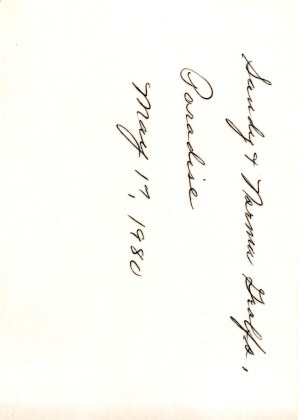 Sandy & Norma Grolfo,
Paradise
May 17, 1980